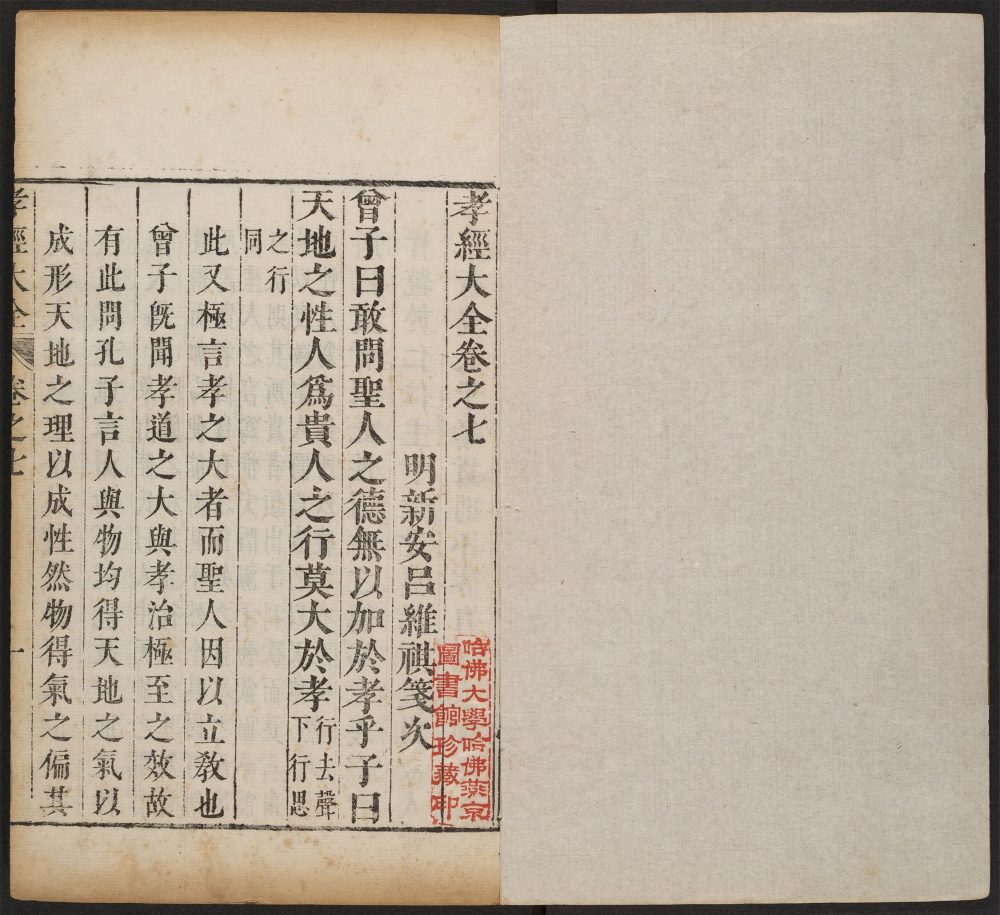 孝經大全卷之七
明新安呂維祺箋次
曾子曰敢問聖人之德無以加於孝乎子曰
天地之性人爲貴人之行莫大於孝行去聲下行思
之行同
此又極言孝之大者而聖人因以立教也
曾子旣聞孝道之大與孝治極至之效故
有此問孔子言人與物均得天地之氣以
成形天地之理以成性然物得氣之偏其
孝經大全 卷之七 一
哈佛大學哈佛燕京
圖書館珍藏印